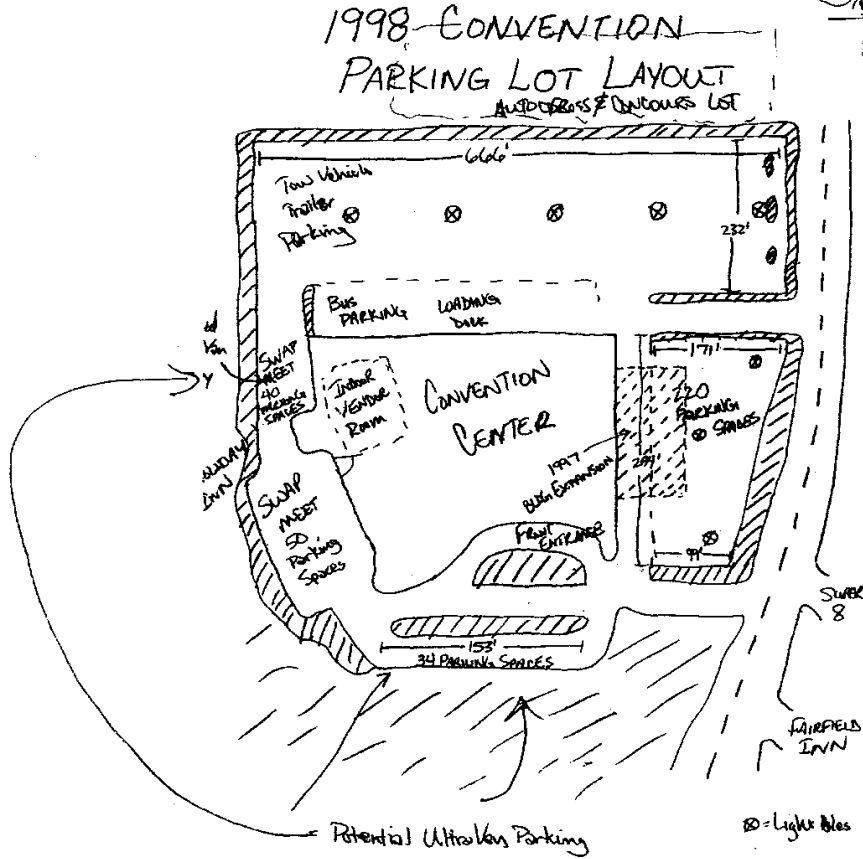 1998 CONVENTION
PARKING LOT LAYOUT
AUTOCROSS & CONCOURS LOT
666'
Tow Vehicle
Trailer
Parking
232'
BUS
PARKING
LOADING
DOCK
SWAP
MEET
40
PARKING
SPACES
INDOOR
VENDOR
ROOM
CONVENTION
CENTER
171'
220
PARKING
SPACES
1997
BLDG EXPANSION
FRONT
ENTRANCE
99'
INN
SWAP
MEET
50
Parking
Spaces
153'
34 PARKING SPACES
SUPER
8
FAIRFIELD
INN
Potential UltraVan Parking
= Light Poles